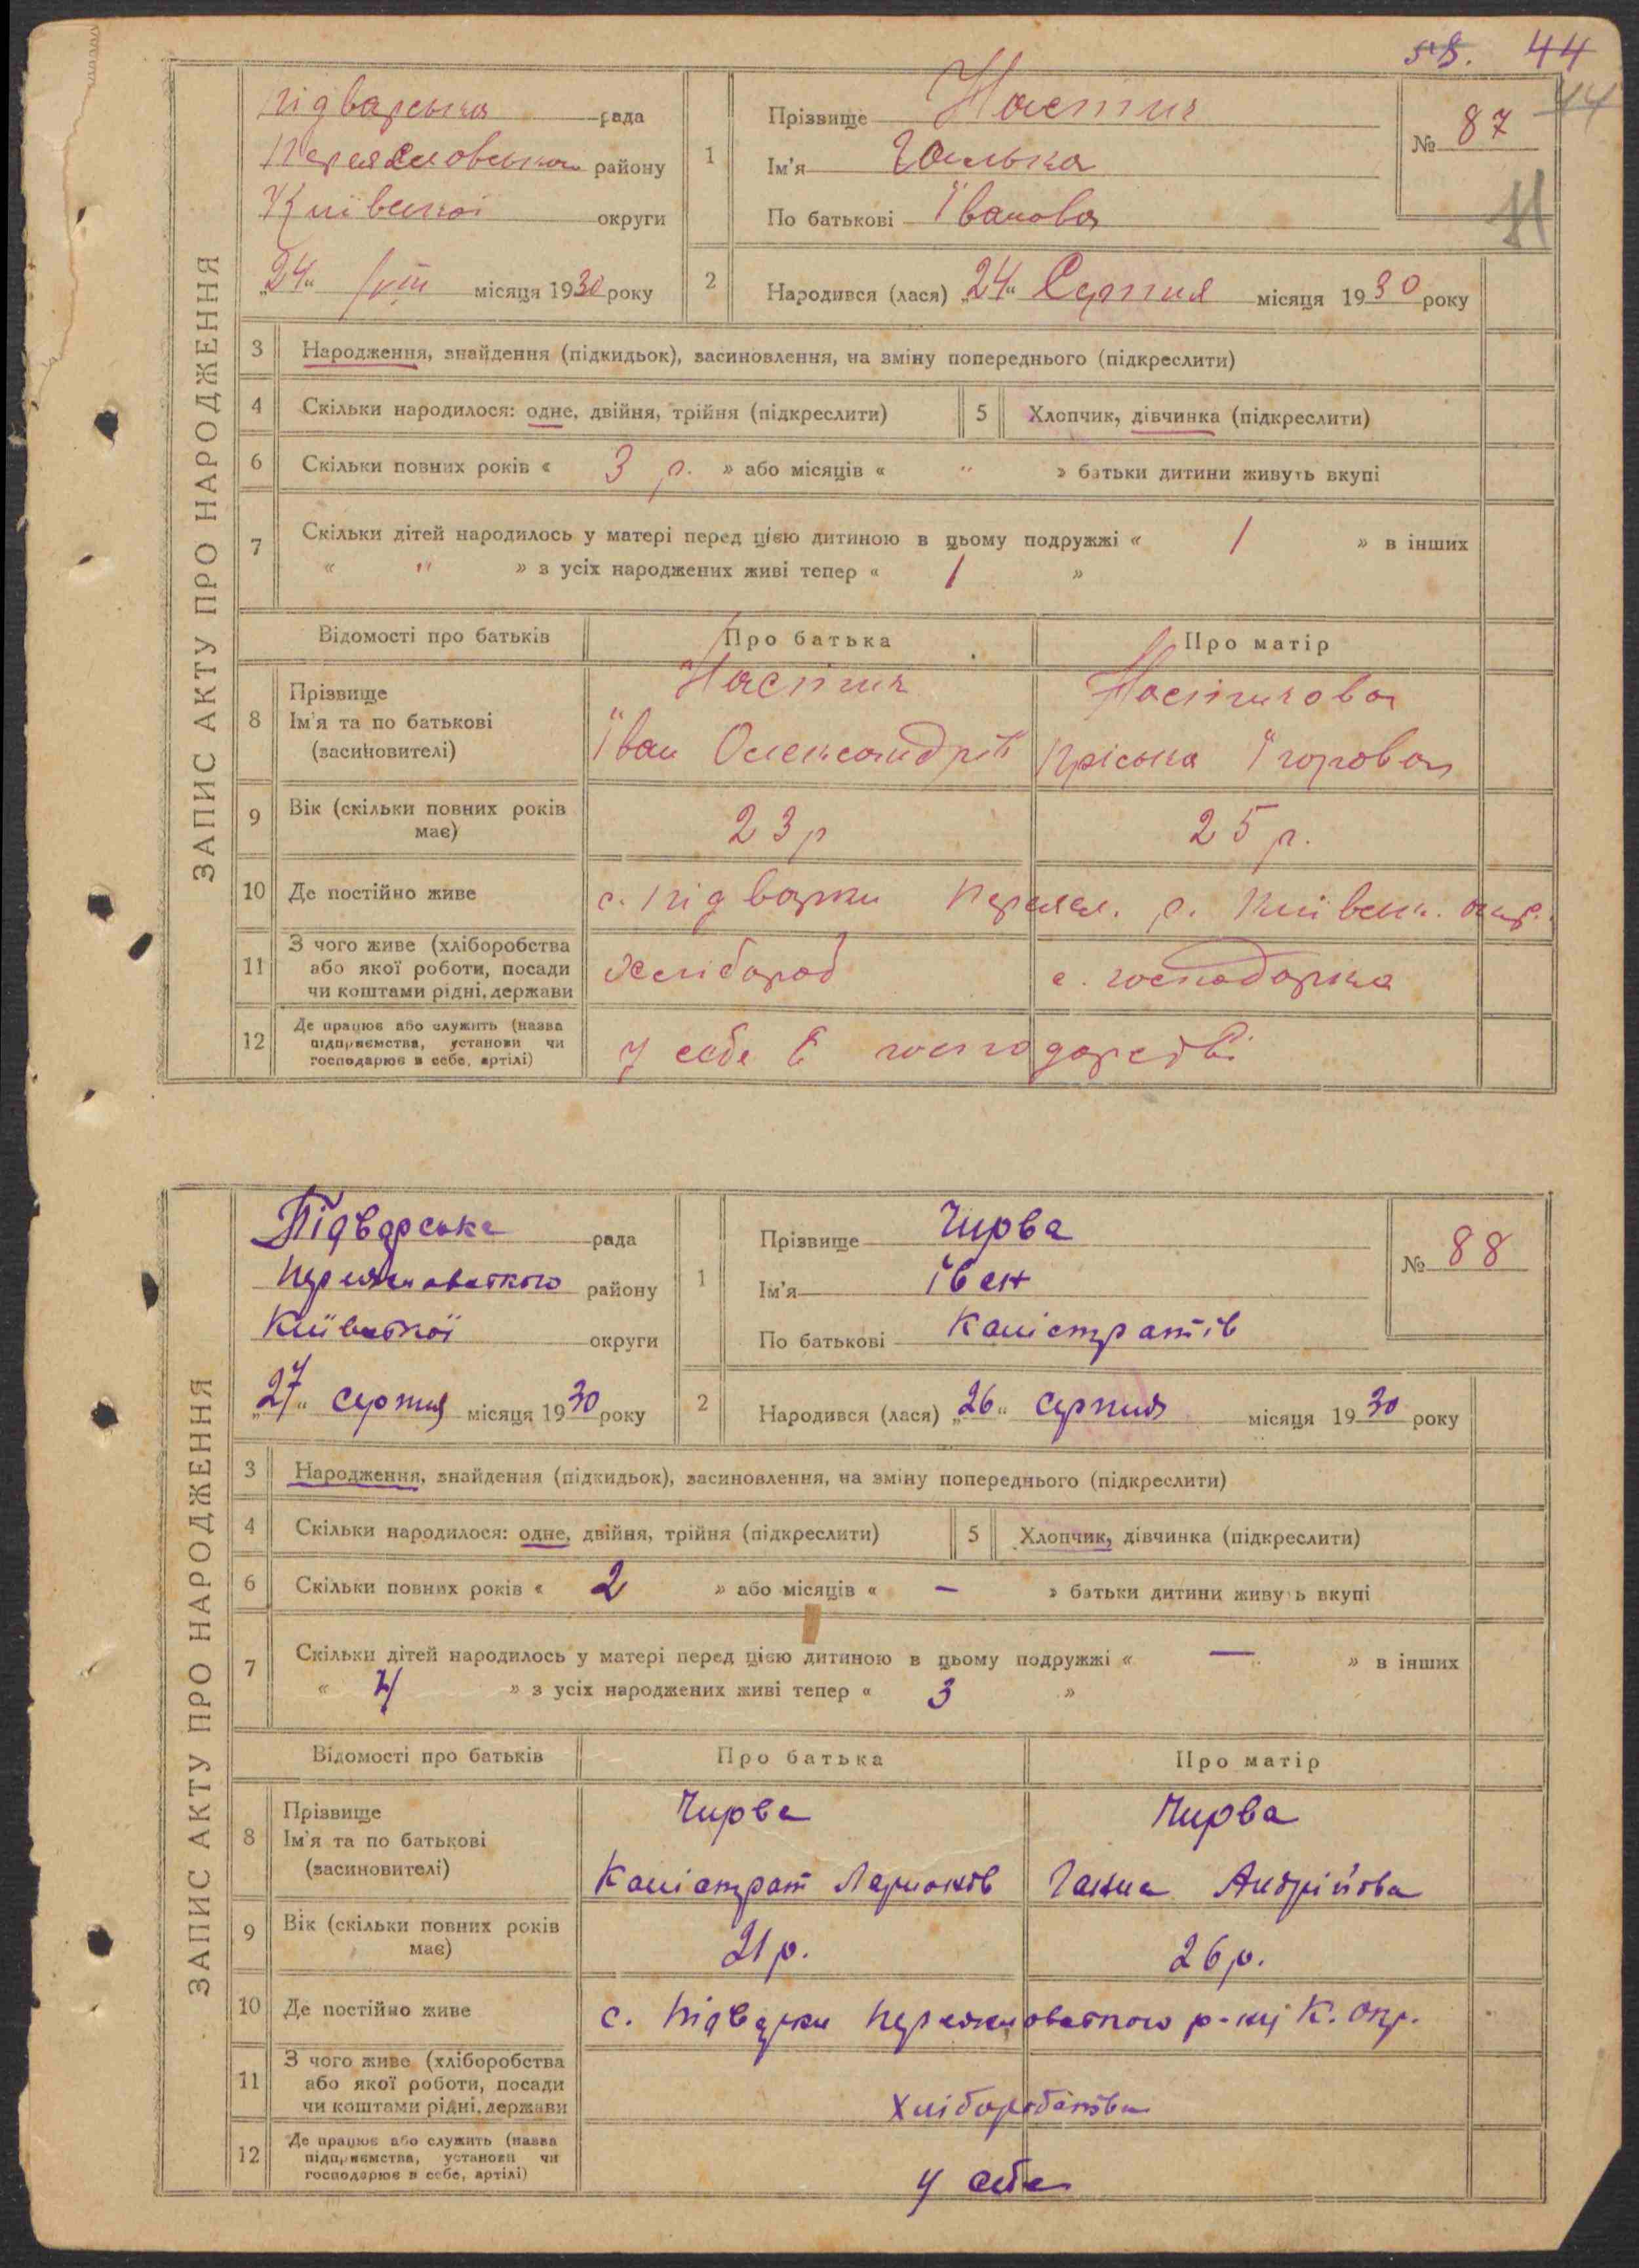 58. 44
44
ЗАПИС АКТУ ПРО НАРОДЖЕННЯ
Підварська рада
Переяславська району
Київської округи
„24“ VIII місяця 1930 року
1
Прізвище Настич
Ім'я Галька
По батькові Іванова
№ 87
2
Народився (лася) „24“ Серпня місяця 1930 року
3 Народження, знайдення (підкидьок), засиновлення, на зміну попереднього (підкреслити)
4 Скільки народилося: одне, двійня, трійня (підкреслити) 5 Хлопчик, дівчинка (підкреслити)
6 Скільки повних років « 3 р. » або місяців « " » батьки дитини живуть вкупі
7 Скільки дітей народилось у матері перед цією дитиною в цьому подружжі « 1 » в інших
« " » з усіх народжених живі тепер « 1 »
Відомості про батьків Про батька Про матір
8 Прізвище
Ім'я та по батькові
(засиновителі)
Настич Настичова
Іван Олександрів Пріська Ігорова
9 Вік (скільки повних років має) 23 р 25 р.
10 Де постійно живе с. Підварки Переясл. р. Київськ. окр.
11 З чого живе (хліборобства
або якої роботи, посади
чи коштами рідні, держави
Хлібороб с. господарка
12 Де працює або служить (назва
підприємства, установи чи
господарює в себе, артілі)
у себе в господарстві
ЗАПИС АКТУ ПРО НАРОДЖЕННЯ
Підварська рада
Переяславського району
Київської округи
„27“ серпня місяця 1930 року
1
Прізвище Чирва
Ім'я Іван
По батькові Калістратів
№ 88
2
Народився (лася) „26“ серпня місяця 1930 року
3 Народження, знайдення (підкидьок), засиновлення, на зміну попереднього (підкреслити)
4 Скільки народилося: одне, двійня, трійня (підкреслити) 5 Хлопчик, дівчинка (підкреслити)
6 Скільки повних років « 2 » або місяців « — » батьки дитини живуть вкупі
7 Скільки дітей народилось у матері перед цією дитиною в цьому подружжі « — » в інших
« 4 » з усіх народжених живі тепер « 3 »
Відомості про батьків Про батька Про матір
8 Прізвище
Ім'я та по батькові
(засиновителі)
Чирва Чирва
Калістрат Ларионів Ганна Андрійова
9 Вік (скільки повних років має) 21 р. 26 р.
10 Де постійно живе с. Підварки Переяславського р-ну К. Окр.
11 З чого живе (хліборобства
або якої роботи, посади
чи коштами рідні, держави
Хліборобства
12 Де працює або служить (назва
підприємства, установи чи
господарює в себе, артілі)
у себе